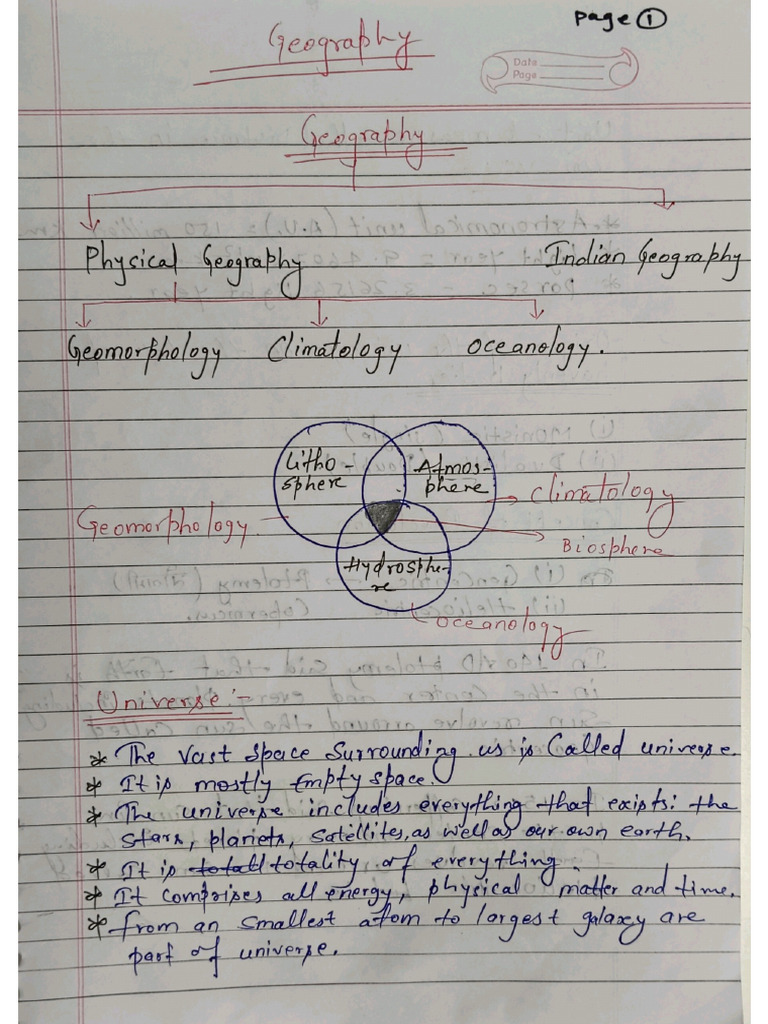 Page ①
Geography
Date
Page
Geography
Physical Geography Indian Geography
Geomorphology Climatology Oceanology.
Litho-
sphere
Atmos-
phere
Climatology
Geomorphology
Biosphere
Hydrosphe-
re
Oceanology
Universe :-
* The vast space surrounding us is called universe.
* It is mostly Empty space.
* The universe includes everything that exists: the
stars, planets, satellites, as well as our own earth.
* It is totall totality of everything.
* It comprises all energy, physical matter and time.
* from an smallest atom to largest galaxy are
part of universe.